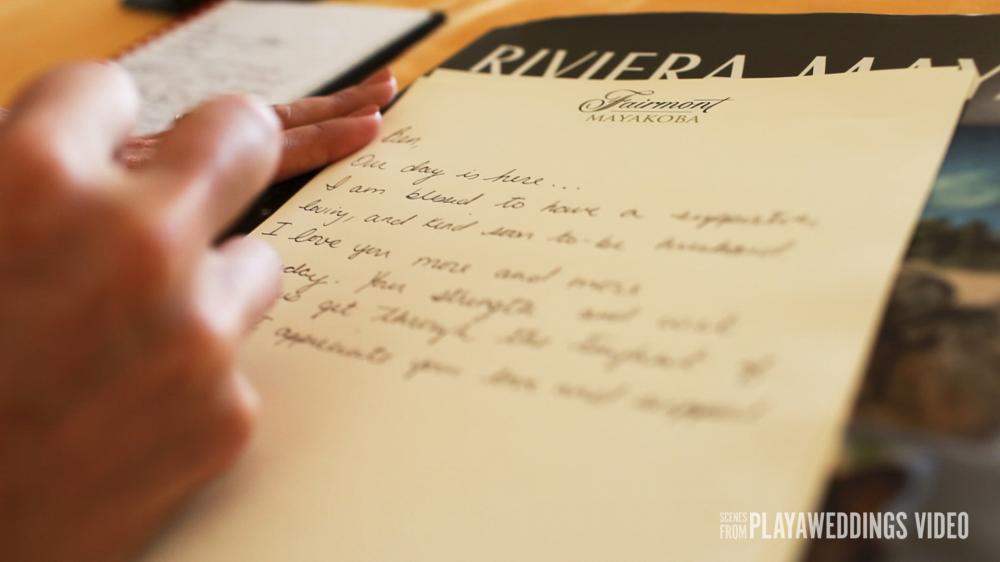 RIVIERA MAY
Fairmont
MAYAKOBA
Ben,
Our day is here...
I am blessed to have a supportive,
loving, and kind soon-to-be husband.
I love you more and more
day. Your strength and
get through the toughest of
appreciate you love and support
SCENES
FROM PLAYAWEDDINGS VIDEO